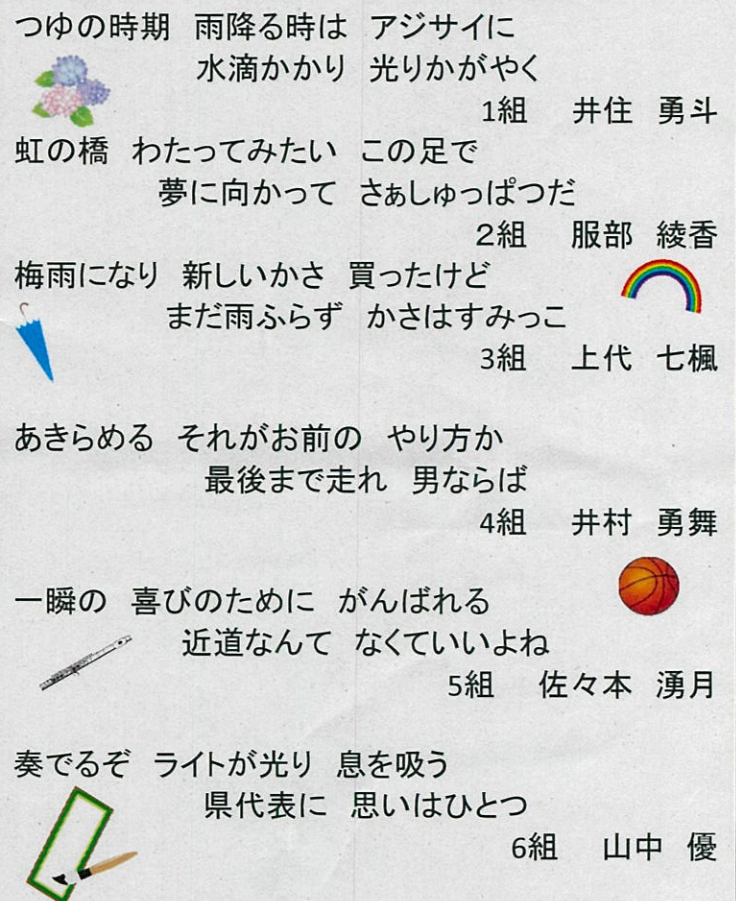 つゆの時期 雨降る時は アジサイに
水滴かかり 光りかがやく
1組 井住 勇斗
虹の橋 わたってみたい この足で
夢に向かって さぁしゅっぱつだ
2組 服部 綾香
梅雨になり 新しいかさ 買ったけど
まだ雨ふらず かさはすみっこ
3組 上代 七楓
あきらめる それがお前の やり方か
最後まで走れ 男ならば
4組 井村 勇舞
一瞬の 喜びのために がんばれる
近道なんて なくていいよね
5組 佐々本 湧月
奏でるぞ ライトが光り 息を吸う
県代表に 思いはひとつ
6組 山中 優